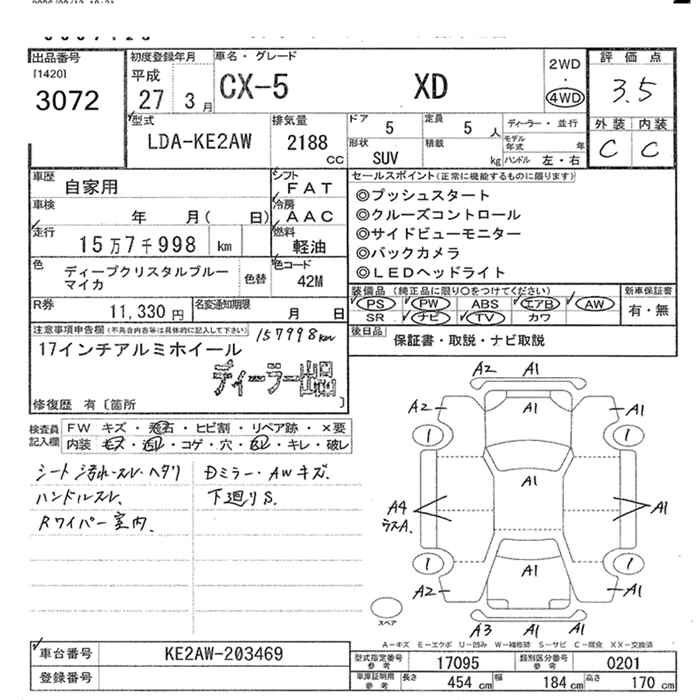 出品番号 初度登録年月 車名・グレード 評価点
[1420] 平成 2WD
3072 27 3月 CX-5 XD ・ 4WD 3.5
型式 排気量 ドア 5 定員 5 人 ディーラー・並行 外装 内装
LDA-KE2AW 2188 cc 形状 SUV 積載 kg モデル年式 年 C C
ハンドル 左・右
車歴 自家用 シフト FAT セールスポイント(正常に機能するものに限ります)
車検 年 月( 日) 冷房 AAC ◎プッシュスタート
走行 15万7千998 km 燃料 軽油 ◎クルーズコントロール
◎サイドビューモニター
色 ディープクリスタルブルーマイカ 色替 色コード 42M ◎バックカメラ
◎LEDヘッドライト
R券 11,330円 名変通知期限 月 日 装備品(純正品に限り○をつけてください) 新車保証書
PS PW ABS エアB AW 有・無
SR ナビ TV カワ
注意事項申告欄(不具合内容等は具体的に記入して下さい) 157998km 後日品 保証書・取説・ナビ取説
17インチアルミホイール
ディーラー出品
修復歴 有〔箇所
検査員記入欄 FW キズ・飛石・ヒビ割・リペア跡・×要
内装 キズ・汚レ・コゲ・穴・スレ・キレ・破レ
シート汚れ・スレ・ヘタリ Dミラー・AWキズ.
ハンドルスレ. 下廻りS.
Rワイパー室内.
A2 A1
A2 A1 A1
1 1
A1
A4 A1
ラスA.
1 1
A2 A1 A1
A3 A1 A1
スペア
A-キズ E-エクボ U-凹み W-補修跡 S-サビ C-腐食 XX-交換済
車台番号 KE2AW-203469 型式指定番号 参考 17095 類別区分番号 参考 0201
登録番号 車庫証明用 参考 長さ 454 cm 幅 184 cm 高さ 170 cm